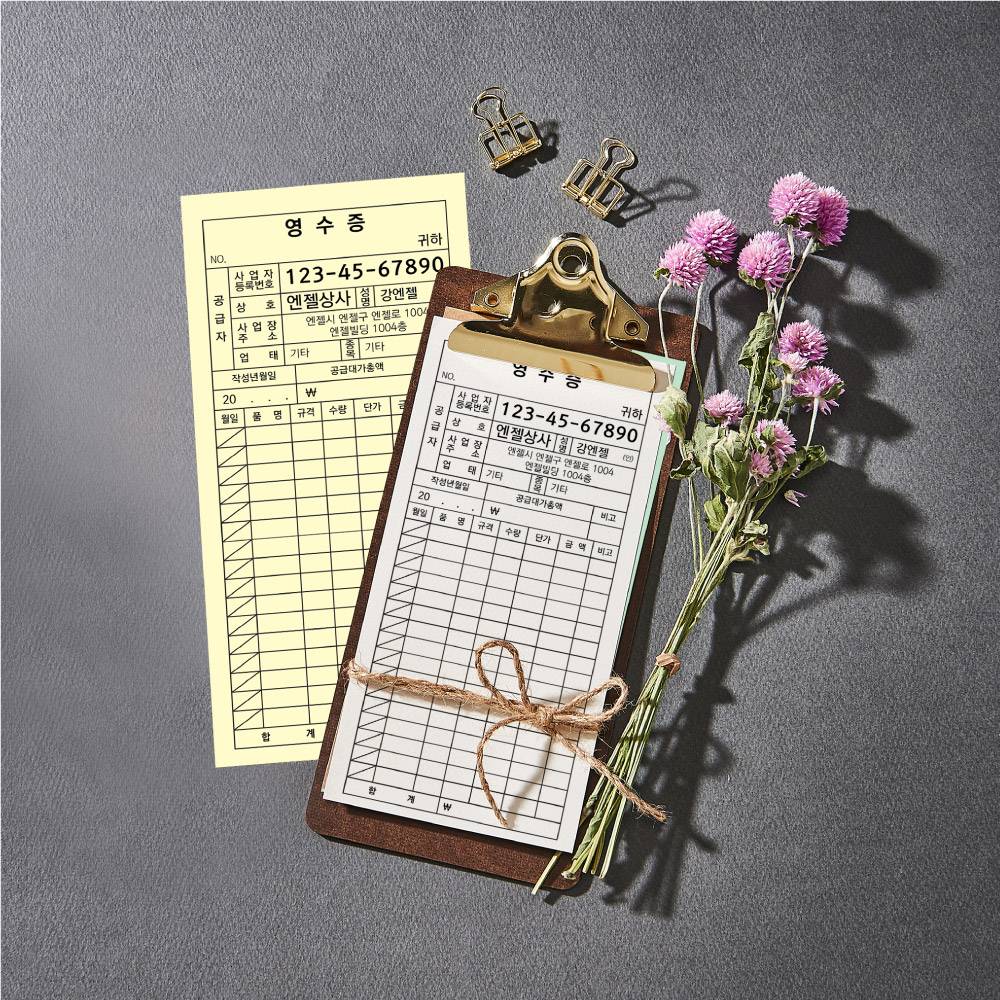 영 수 증
NO.
귀하
공급자
사업자등록번호
123-45-67890
상 호
엔젤상사
성명
강엔젤
사업장주소
엔젤시 엔젤구 엔젤로 1004
엔젤빌딩 1004층
업 태
기타
종목
기타
작성년월일
공급대가총액
20 . . .
₩
월일 품 명 규격 수량 단가
합 계
영 수 증
NO.
귀하
공급자
사업자등록번호
123-45-67890
상 호
엔젤상사
성명
강엔젤
(인)
사업장주소
엔젤시 엔젤구 엔젤로 1004
엔젤빌딩 1004층
업 태
기타
종목
기타
작성년월일
공급대가총액
비고
20 . . .
₩
월일 품 명 규격 수량 단가 금 액 비고
합 계 ₩